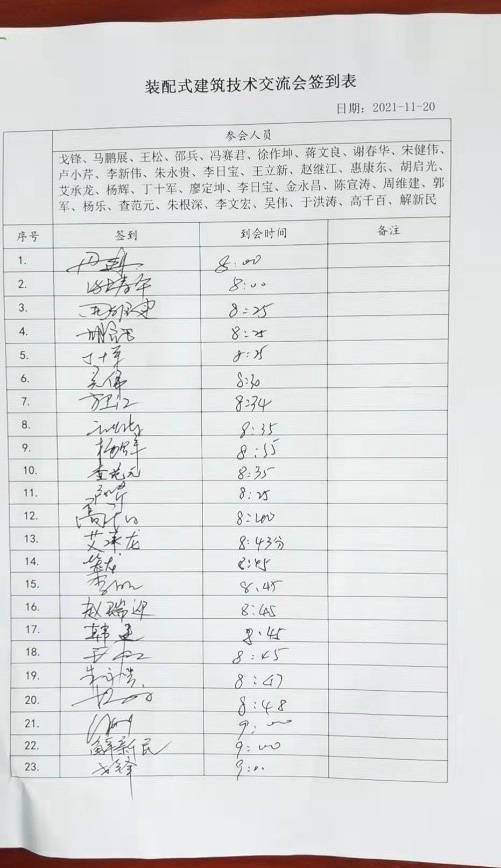 装配式建筑技术交流会签到表
日期：2021-11-20
参会人员
戈锋、马鹏展、王松、邵兵、冯赛君、徐作坤、蒋文良、谢春华、宋健伟、
卢小芹、李新伟、朱永贵、李日宝、王立新、赵继江、惠康东、胡启光、
艾承龙、杨辉、丁十军、廖定坤、李日宝、金永昌、陈宣涛、周维建、郭
军、杨乐、查范元、朱根深、李文宏、吴伟、于洪涛、高千百、解新民
序号 签到 到会时间 备注
1. 8:00
2. 8:00
3. 8:25
4. 8:25
5. 丁十军 8:25
6. 吴伟 8:30
7. 8:34
8. 8:35
9. 杨辉 8:35
10. 查范元 8:35
11. 8:25
12. 高千百
13. 艾承龙 8:43分
14. 8:45
15. 8.45
16. 赵瑞迎 8:45
17. 韩建 8.45
18. 8:45
19. 朱永贵 8:47
20. 8:48
21. 9:00
22. 解新民 9:00
23. 戈锋 9:00